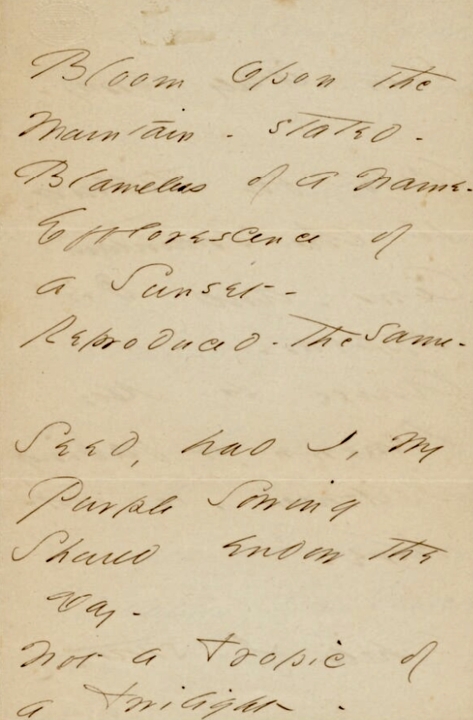 Bloom upon the
Mountain - stated -
Blameless of a Name -
Efflorescence of
a Sunset -
Reproduced - the same -
Seed, had I, my
Purple Sowing
Should endow the
Day -
Not a Tropic of
a Twilight -